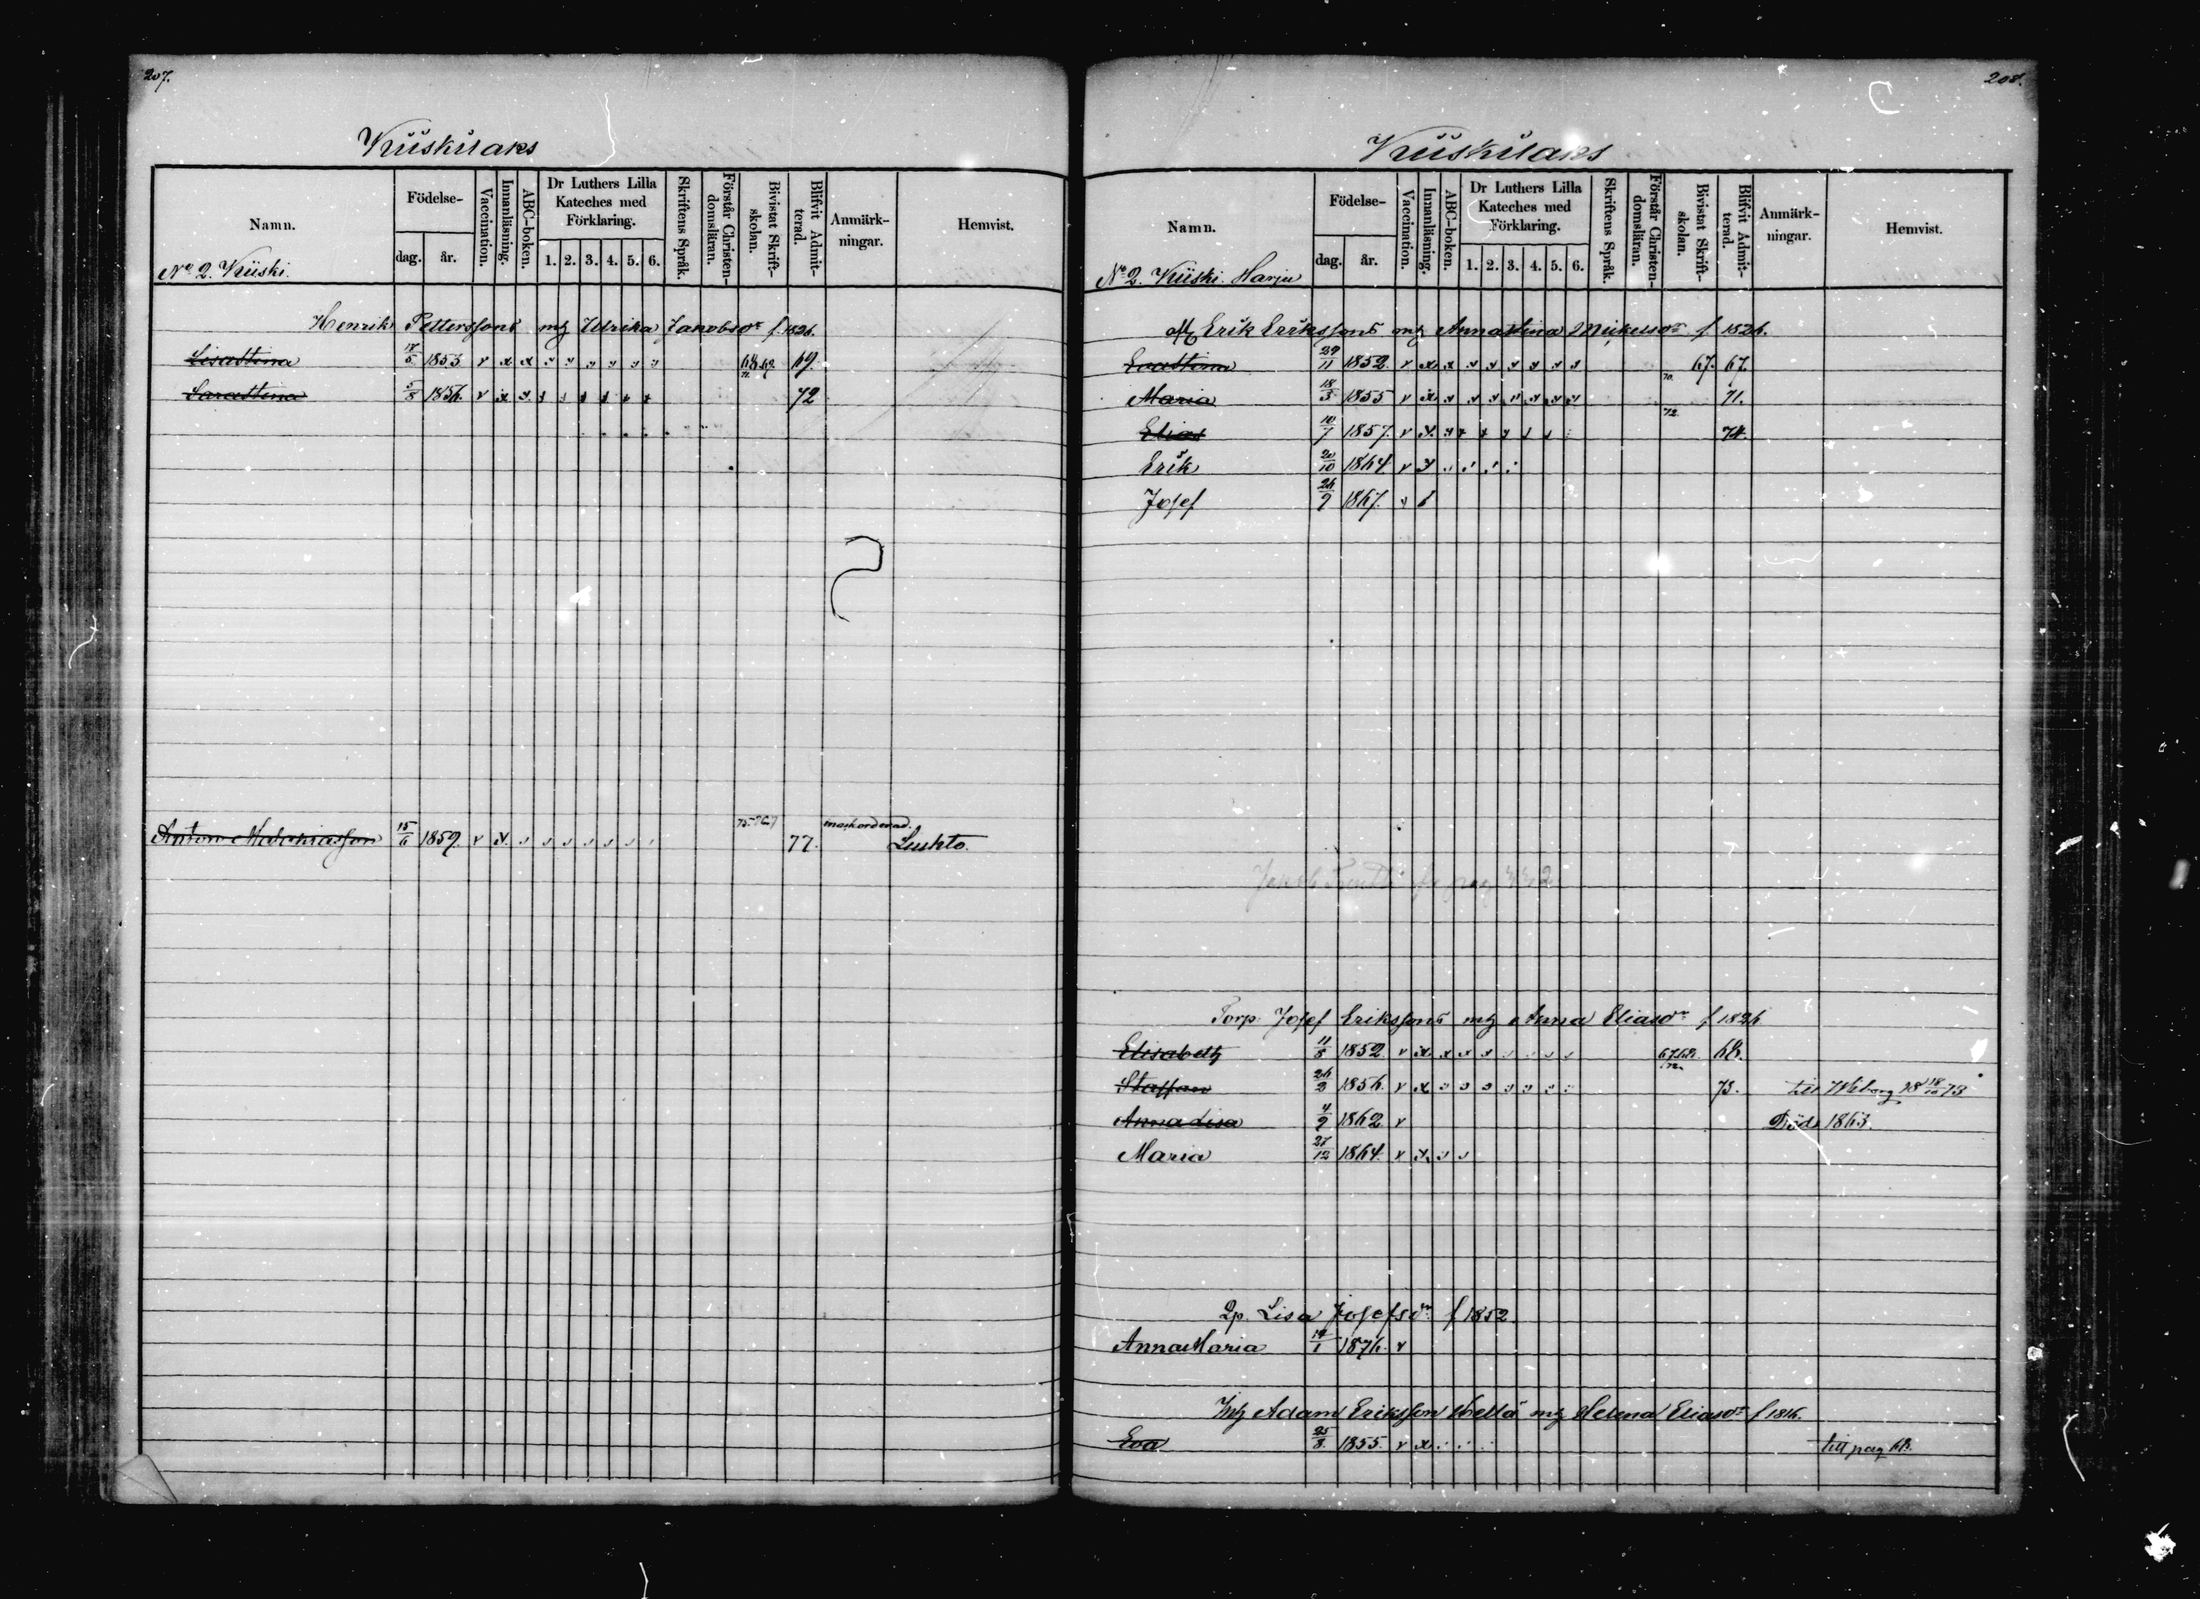 207.
Kiiskilaks
Namn. Födelse- dag. år. Vaccination. Innanläsning. ABC-boken. Dr Luthers Lilla Kateches med Förklaring. 1. 2. 3. 4. 5. 6. Skriftens Språk. Förstår Christendomsläran. Bivistat Skriftskolan. Blifvit Admitterad. Anmärkningar. Hemvist.
No 2. Kiiski.
Henrik Petterssons mh Ulrika Jacobsdr f. 1826.
Lisastina 17/5 1853 v x x 69.
Sarastina 5/8 1856. v x 72
Anton 15/6 1859. v 77. Luhto.
208.
Kiiskilaks
Namn. Födelse- dag. år. Vaccination. Innanläsning. ABC-boken. Dr Luthers Lilla Kateches med Förklaring. 1. 2. 3. 4. 5. 6. Skriftens Språk. Förstår Christendomsläran. Bivistat Skriftskolan. Blifvit Admitterad. Anmärkningar. Hemvist.
No 2. Kiiski. Harju
Erik Erikssons mh Annastina Mickelsdr f 1826.
Evastina 29/11 1852. v x 67. 67.
Maria 18/3 1855 v x 70. 71.
Elias 10/7 1857. v x 72. 74.
Erik 20/10 1864 v
Josef 26/9 1867. v
pag 442
Torp. Josef Erikssons mh Anna Eliasdr f 1826
Elisabeth 11/8 1852. v x 68.
Staffan 1856. v x 73. till Wiborg 18/10 73
Annalisa 4/9 1862 v Död 1863.
Maria 27/12 1864. v
Qp. Lisa Josefsdr f 1852
AnnaMaria 1876. v
Inh Adam Eriksson mh Helena Eliasdr f 1816.
Eva 25/8. 1855. v x till pag 68.